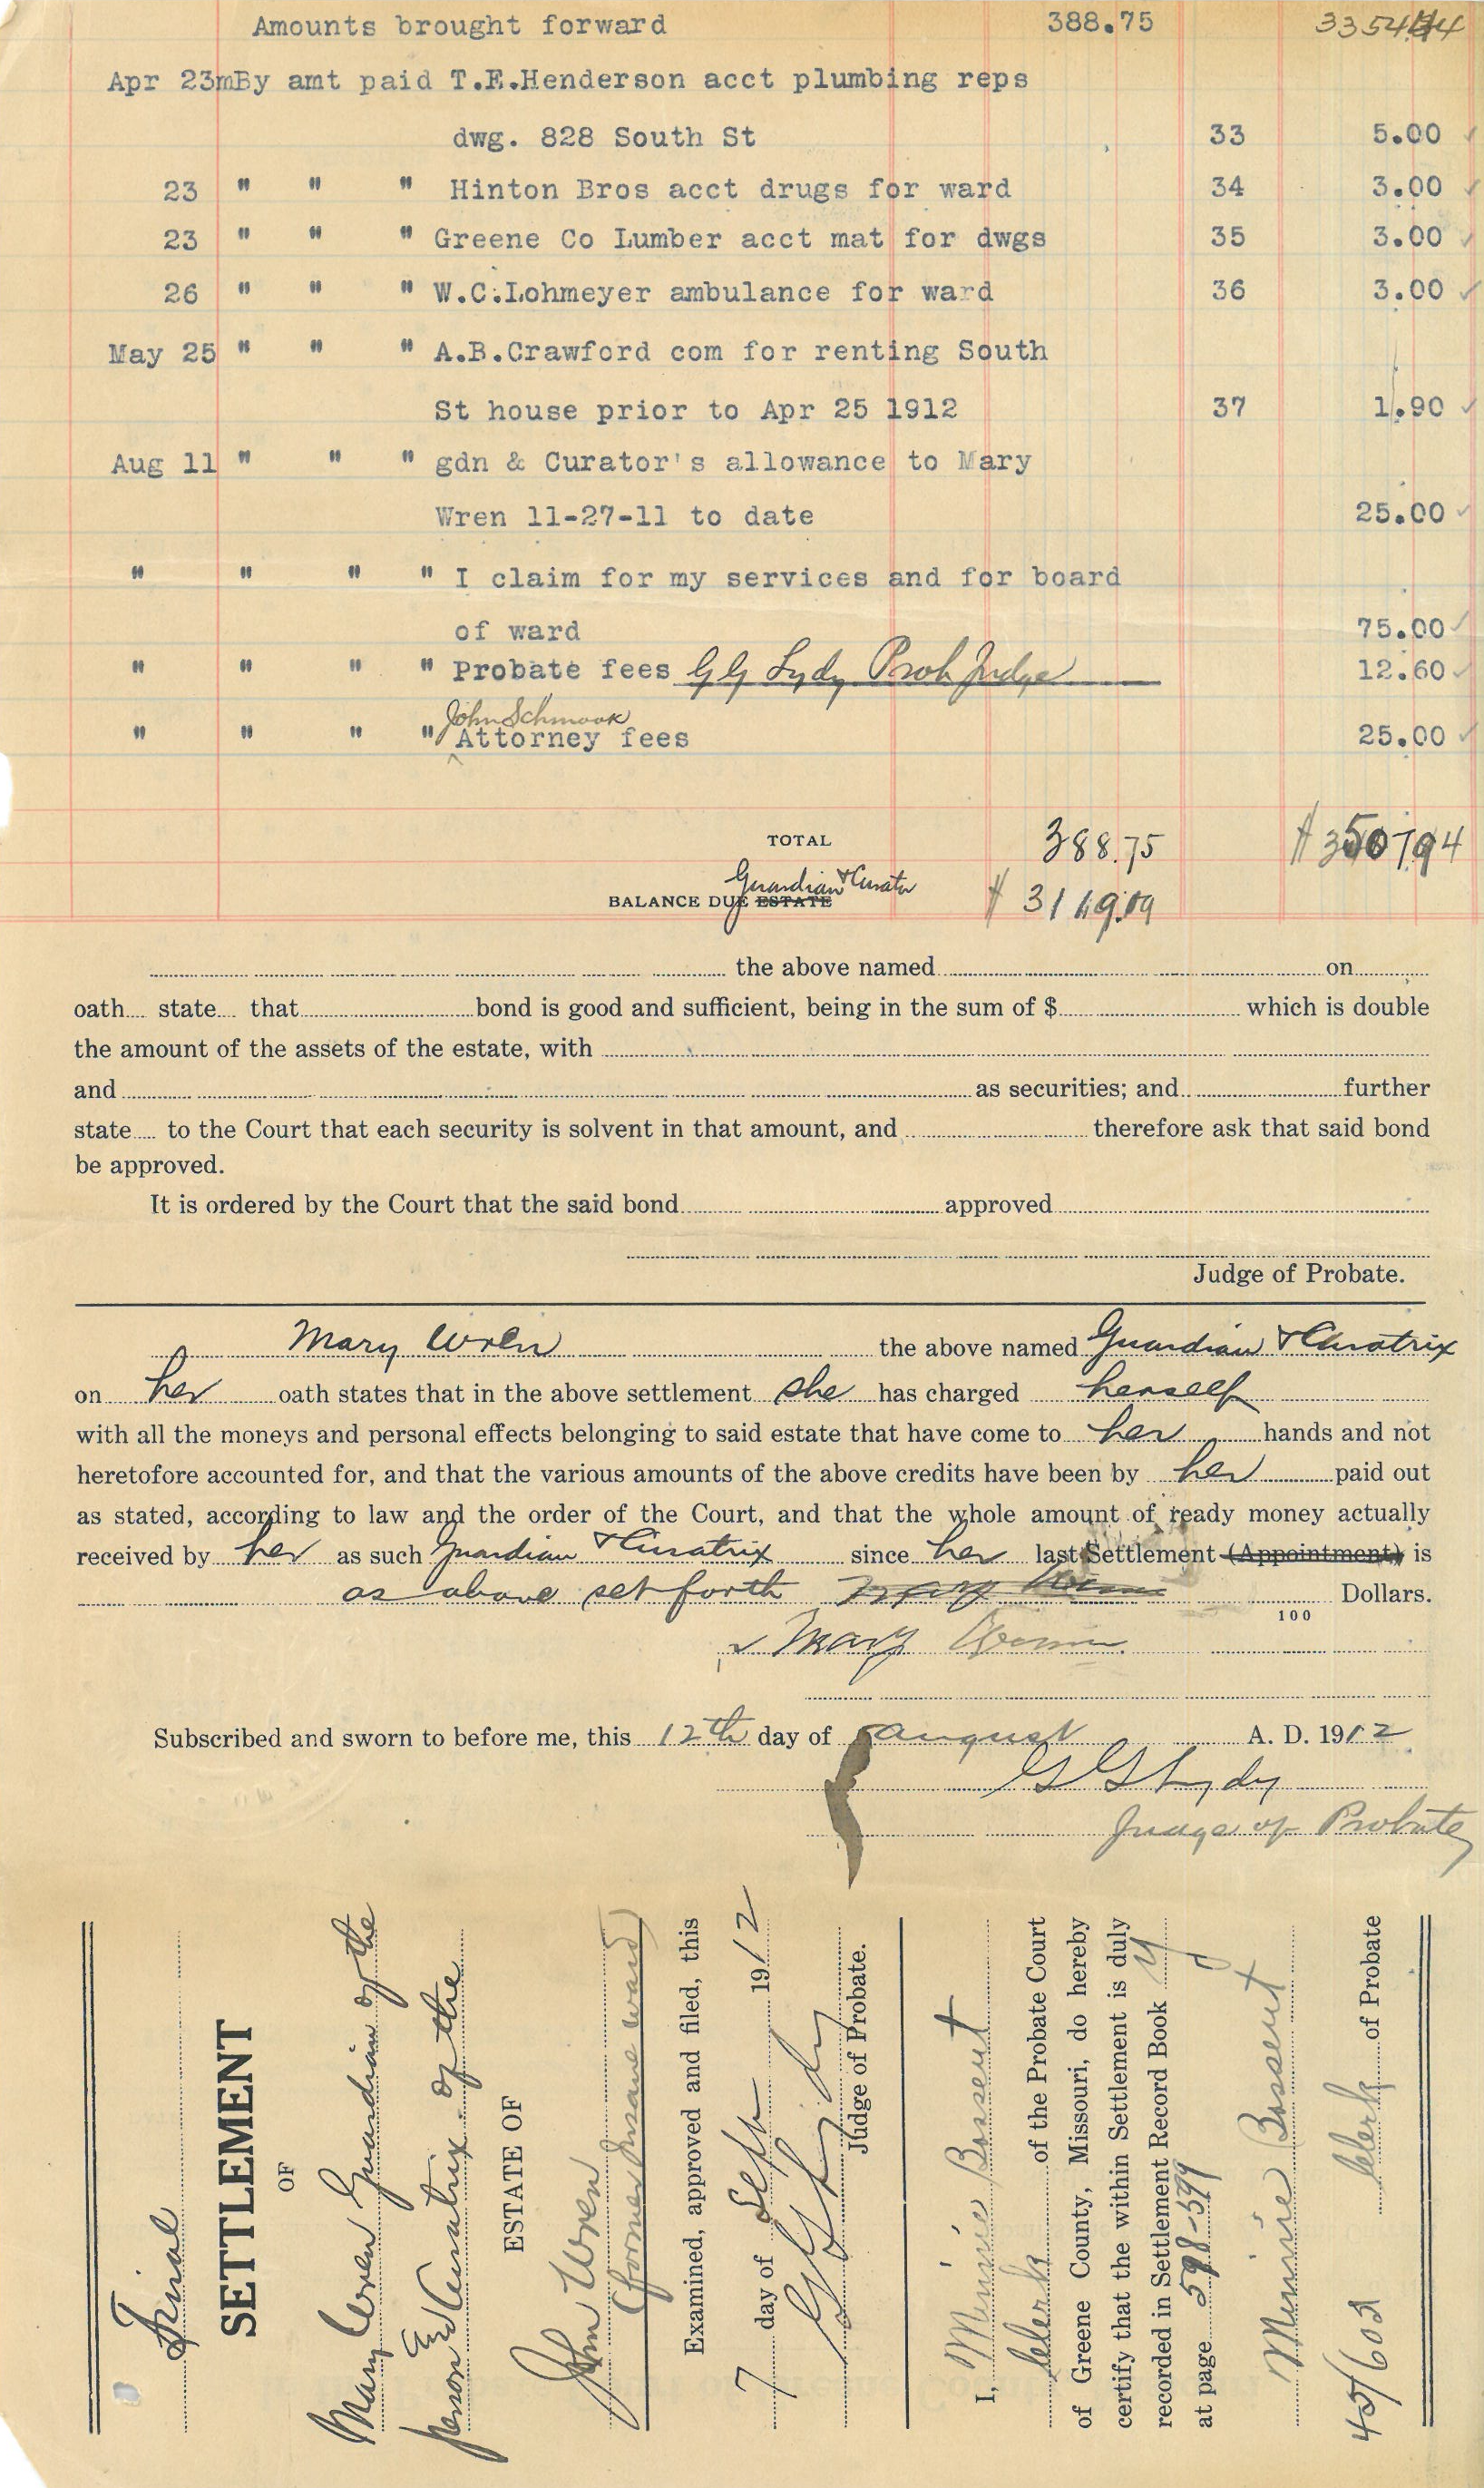 Amounts brought forward 388.75 3354.44
Apr 23mBy amt paid T.E.Henderson acct plumbing reps
dwg. 828 South St 33 5.00 ✓
23 " " " Hinton Bros acct drugs for ward 34 3.00 ✓
23 " " " Greene Co Lumber acct mat for dwgs 35 3.00 ✓
26 " " " W.C.Lohmeyer ambulance for ward 36 3.00 ✓
May 25 " " " A.B.Crawford com for renting South
St house prior to Apr 25 1912 37 1.90 ✓
Aug 11 " " " gdn & Curator's allowance to Mary
Wren 11-27-11 to date 25.00 ✓
" " " " I claim for my services and for board
of ward 75.00 ✓
" " " " Probate fees G G Lydy Prob Judge 12.60 ✓
John Schmook
" " " " Attorney fees 25.00 ✓
TOTAL 388.75 $ 350794
Guardian & Curator
BALANCE DUE ESTATE $ 3119.19
the above named on
oath state that bond is good and sufficient, being in the sum of $ which is double
the amount of the assets of the estate, with
and as securities; and further
state to the Court that each security is solvent in that amount, and therefore ask that said bond
be approved.
It is ordered by the Court that the said bond approved
Judge of Probate.
Mary Wren the above named Guardian & Curatrix
on her oath states that in the above settlement she has charged herself
with all the moneys and personal effects belonging to said estate that have come to her hands and not
heretofore accounted for, and that the various amounts of the above credits have been by her paid out
as stated, according to law and the order of the Court, and that the whole amount of ready money actually
received by her as such Guardian & Curatrix since her last Settlement (Appointment) is
as above set forth Mary Dollars.
100
Mary
Subscribed and sworn to before me, this 12th day of august A. D. 1912
G G Lydy
Judge of Probate
Final
SETTLEMENT
OF
Mary Wren Guardian of the
Person & Curatrix of the
ESTATE OF
John Wren
(former Insane ward)
Examined, approved and filed, this
7 day of Sept 1912
G G Lydy
Judge of Probate.
I, Minnie Bossert
Clerk of the Probate Court
of Greene County, Missouri, do hereby
certify that the within Settlement is duly
recorded in Settlement Record Book Y
at page 598-599
Minnie Bossert
Clerk of Probate